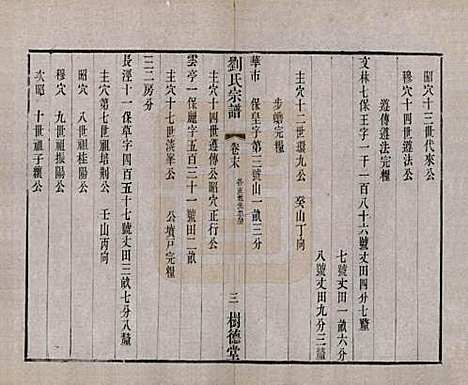 昭穴十三世代來公
穆穴十四世遵法公
遵傳遵法完糧
文林七保王字一千一百八十六號丈田四分七釐
七號丈田一畝六分
八號丈田九分三釐
主穴十二世環九公　癸山丁向
步蟾完糧
華市　保皇字第三號山一畝三分
劉氏宗譜
卷末
三
樹德堂
主穴十四世遵傳公昭穴正行公
雲亭一保麗字五百三十一號田二畝
主穴十七世淡峯公　公墳戶完糧
三二房分
長涇十一保草字四百五十七號丈田三畝七分八釐
主穴第七世祖培荊公　壬山丙向
昭穴　八世祖桂陽公
穆穴　九世祖振陽公
次昭　十世祖子續公